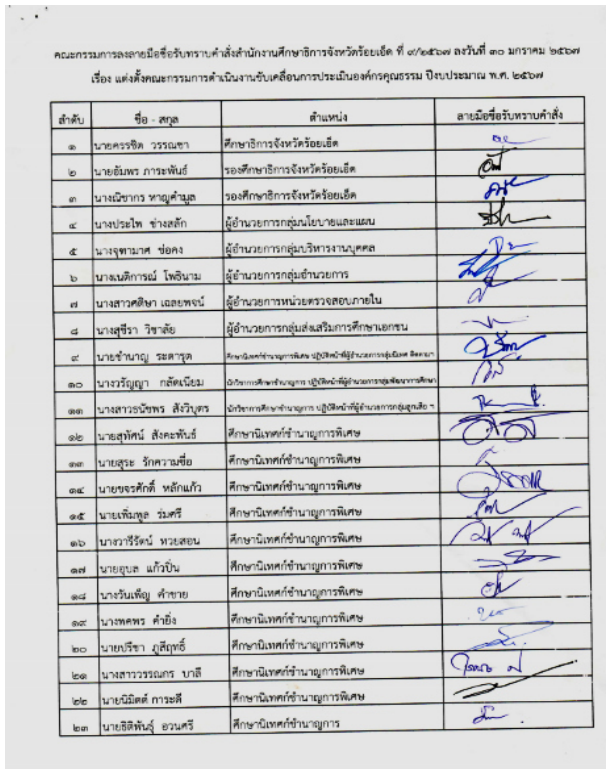 คณะกรรมการลงลายมือชื่อรับทราบคำสั่งสำนักงานศึกษาธิการจังหวัดร้อยเอ็ด ที่ ๙/๒๕๖๗ ลงวันที่ ๓๐ มกราคม ๒๕๖๗
เรื่อง แต่งตั้งคณะกรรมการดำเนินงานขับเคลื่อนการประเมินองค์กรคุณธรรม ปีงบประมาณ พ.ศ. ๒๕๖๗
ลำดับ ชื่อ - สกุล ตำแหน่ง ลายมือชื่อรับทราบคำสั่ง
๑ นายครรชิต วรรณชา ศึกษาธิการจังหวัดร้อยเอ็ด
๒ นายอัมพร ภาระพันธ์ รองศึกษาธิการจังหวัดร้อยเอ็ด
๓ นางณิชากร หาญคำมูล รองศึกษาธิการจังหวัดร้อยเอ็ด
๔ นางประไพ ช่างสลัก ผู้อำนวยการกลุ่มนโยบายและแผน
๕ นางจุฑามาศ ช่อคง ผู้อำนวยการกลุ่มบริหารงานบุคคล
๖ นางเนติการณ์ โพธินาม ผู้อำนวยการกลุ่มอำนวยการ
๗ นางสาวศติษา เฉลยพจน์ ผู้อำนวยการหน่วยตรวจสอบภายใน
๘ นางสุชีรา วิชาลัย ผู้อำนวยการกลุ่มส่งเสริมการศึกษาเอกชน
๙ นายชำนาญ ระดารุต ศึกษานิเทศก์ชำนาญการพิเศษ ปฏิบัติหน้าที่ผู้อำนวยการกลุ่มนิเทศ ติดตามฯ
๑๐ นางวรัญญา กลัดเนียม นักวิชาการศึกษาชำนาญการ ปฏิบัติหน้าที่ผู้อำนวยการกลุ่มพัฒนาการศึกษา
๑๑ นางสาวธนัชพร สังวิบุตร นักวิชาการศึกษาชำนาญการ ปฏิบัติหน้าที่ผู้อำนวยการกลุ่มลูกเสือ ฯ
๑๒ นายสุทัศน์ สังคะพันธ์ ศึกษานิเทศก์ชำนาญการพิเศษ
๑๓ นายสุระ รักความซื่อ ศึกษานิเทศก์ชำนาญการพิเศษ
๑๔ นายขจรศักดิ์ หลักแก้ว ศึกษานิเทศก์ชำนาญการพิเศษ
๑๕ นายเพิ่มพูล ร่มศรี ศึกษานิเทศก์ชำนาญการพิเศษ
๑๖ นางวารีรัตน์ หวยสอน ศึกษานิเทศก์ชำนาญการพิเศษ
๑๗ นายอุบล แก้วปิ่น ศึกษานิเทศก์ชำนาญการพิเศษ
๑๘ นางวันเพ็ญ คำชาย ศึกษานิเทศก์ชำนาญการพิเศษ
๑๙ นางพคพร คำยิ่ง ศึกษานิเทศก์ชำนาญการพิเศษ
๒๐ นายปรีชา ภูสีฤทธิ์ ศึกษานิเทศก์ชำนาญการพิเศษ
๒๑ นางสาววรรณกร บาลี ศึกษานิเทศก์ชำนาญการพิเศษ
๒๒ นายนิมิตต์ การะดี ศึกษานิเทศก์ชำนาญการพิเศษ
๒๓ นายธิติพันธุ์ อวนศรี ศึกษานิเทศก์ชำนาญการ